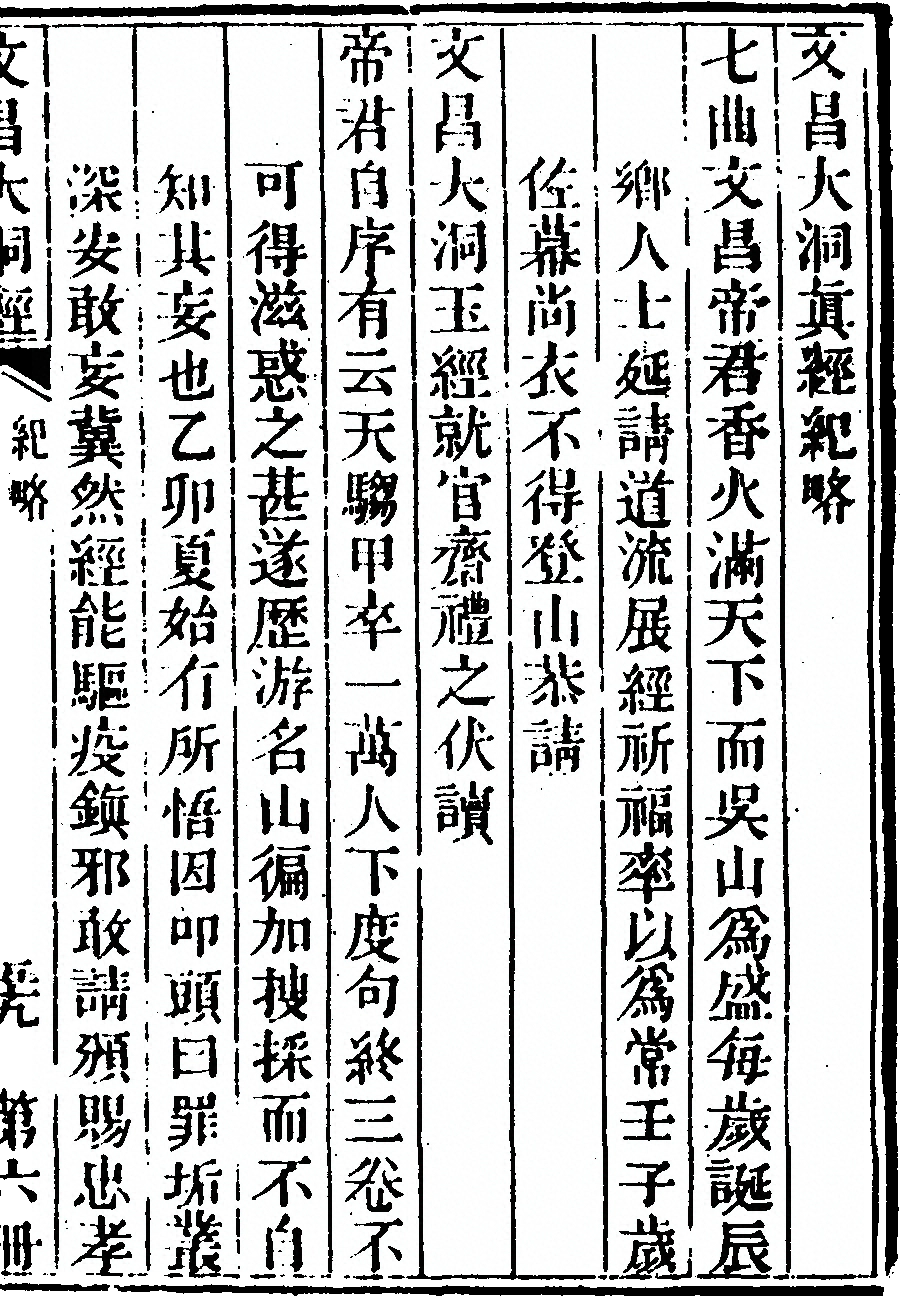 文昌大洞眞經紀略
七曲文昌帝君香火滿天下而吳山爲盛每歲誕辰
鄉人士延請道流展經祈福率以爲常壬子歲
佐幕尚衣不得登山恭請
文昌大洞玉經就官齋禮之伏讀
帝君自序有云天騶甲卒一萬人下度句終三卷不
可得滋惑之甚遂歷游名山徧加搜採而不自
知其妄也乙卯夏始有所悟因叩頭曰罪垢叢
深安敢妄冀然經能驅疫鎮邪敢請頒賜忠孝
文昌大洞經 紀略 第六冊